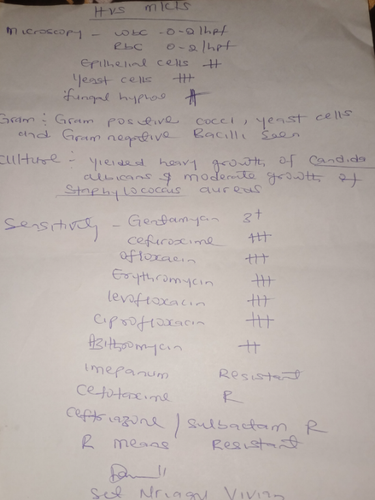 HVS M/C/S
Microscopy - WBC - 0-2/hpf
RBC 0-2/hpf
Epithelial cells ++
Yeast cells +++
fungal hyphae +
Gram: Gram positive cocci, yeast cells
and Gram negative Bacilli seen
Culture:- yielded heavy growth of Candida
albicans & moderate growth of
Staphylococcus aureus
Sensitivity - Gentamycin 3+
cefuroxime +++
ofloxacin +++
Erythromycin +++
levofloxacin +++
Ciprofloxacin +++
Azithromycin ++
imepanum Resistant
Cefotaxime R
Ceftriazone / Sulbactam R
R means Resistant
Vivian